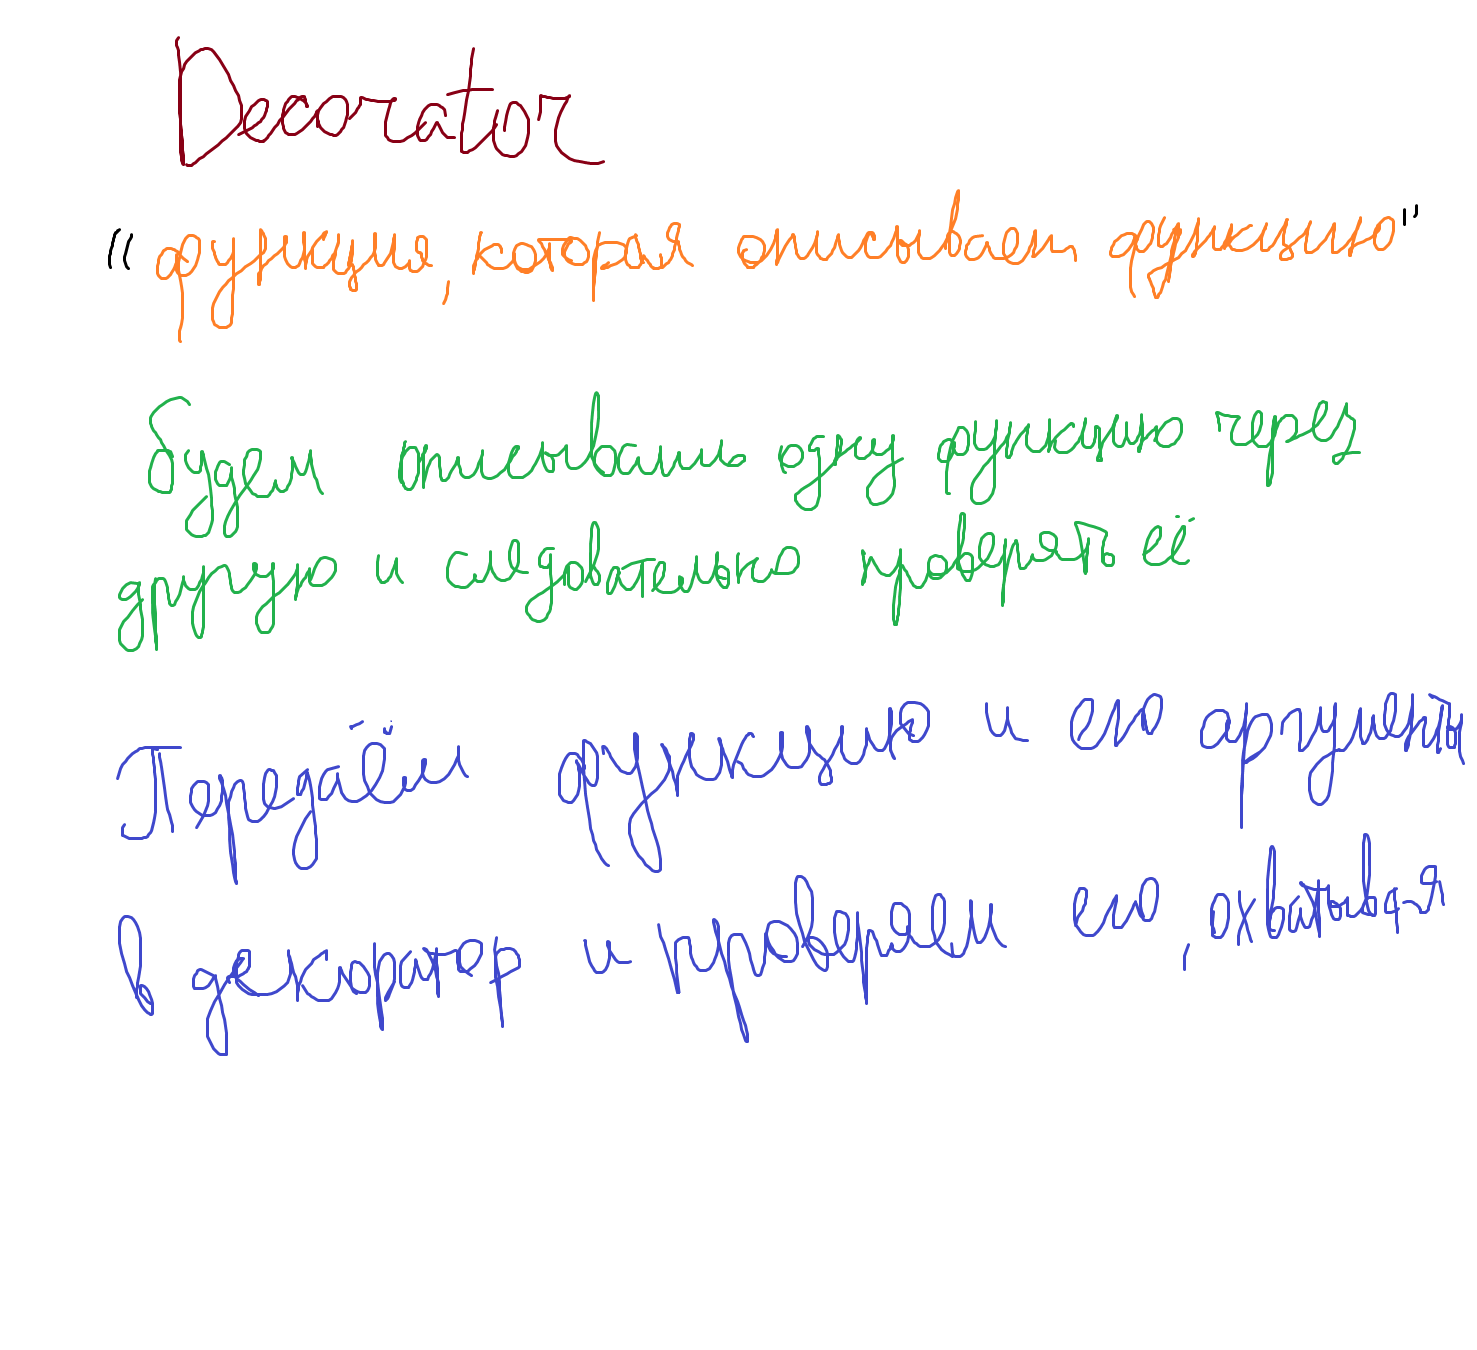 Decorator
"функция, которая описывает функцию"
будем описывать одну функцию через
другую и следовательно проверять её
Передаём функцию и его аргументы
в декоратор и проверяем его, охватывая